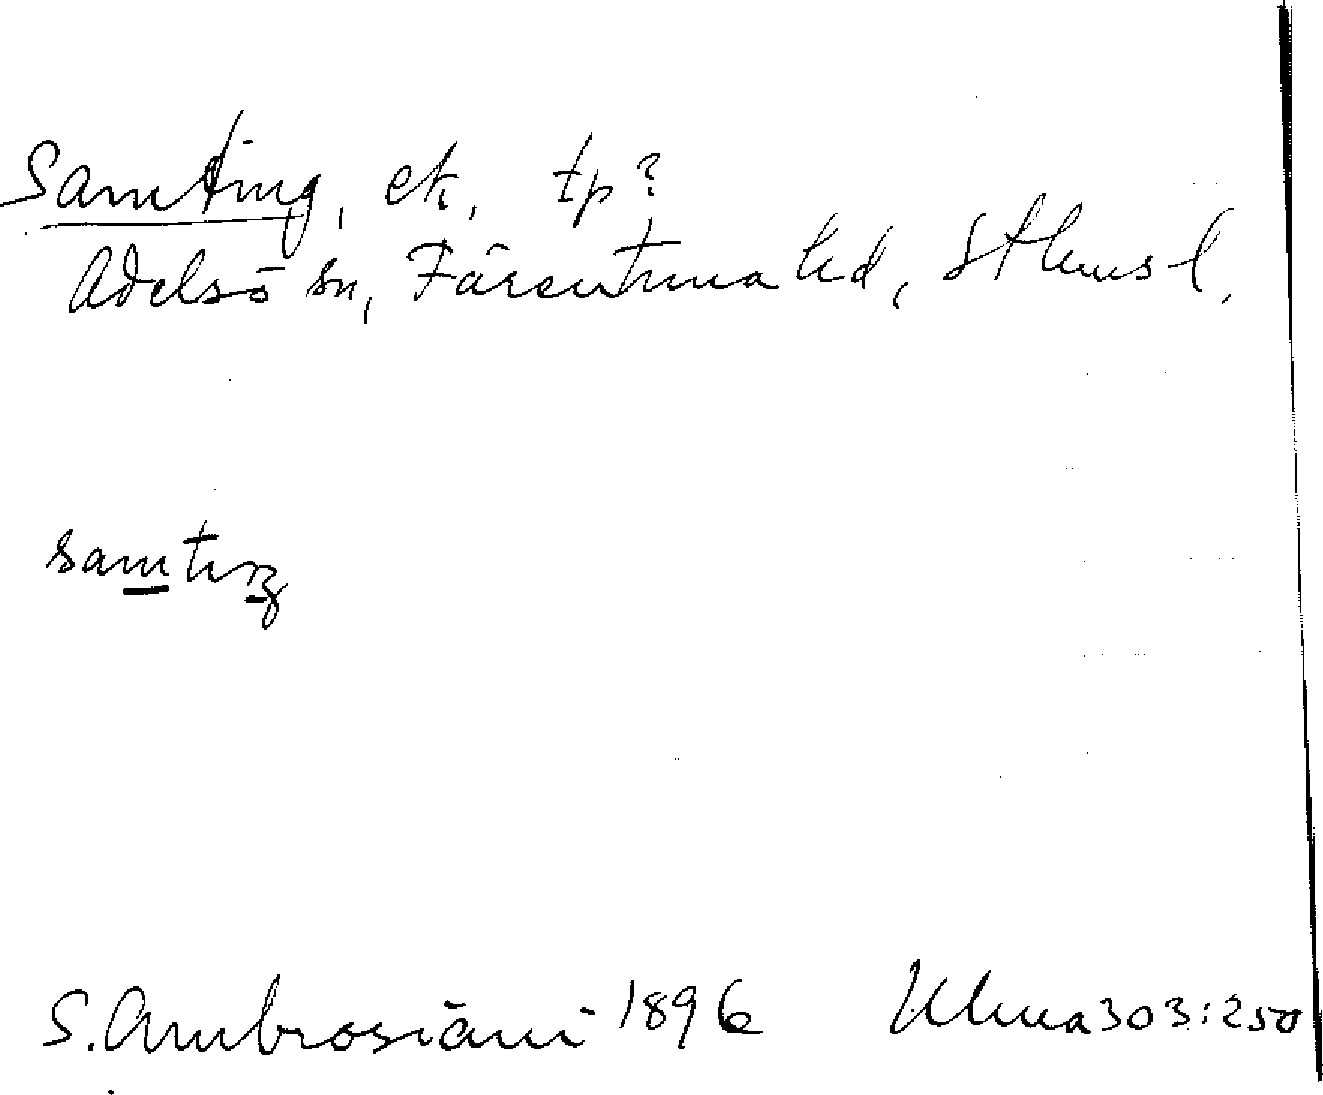 Samting, ek, tp?
Adelsö sn, Färentuna hd, Sthlms l,
samtiŋ
S. Ambrosiani 1896 Ulma 303:250